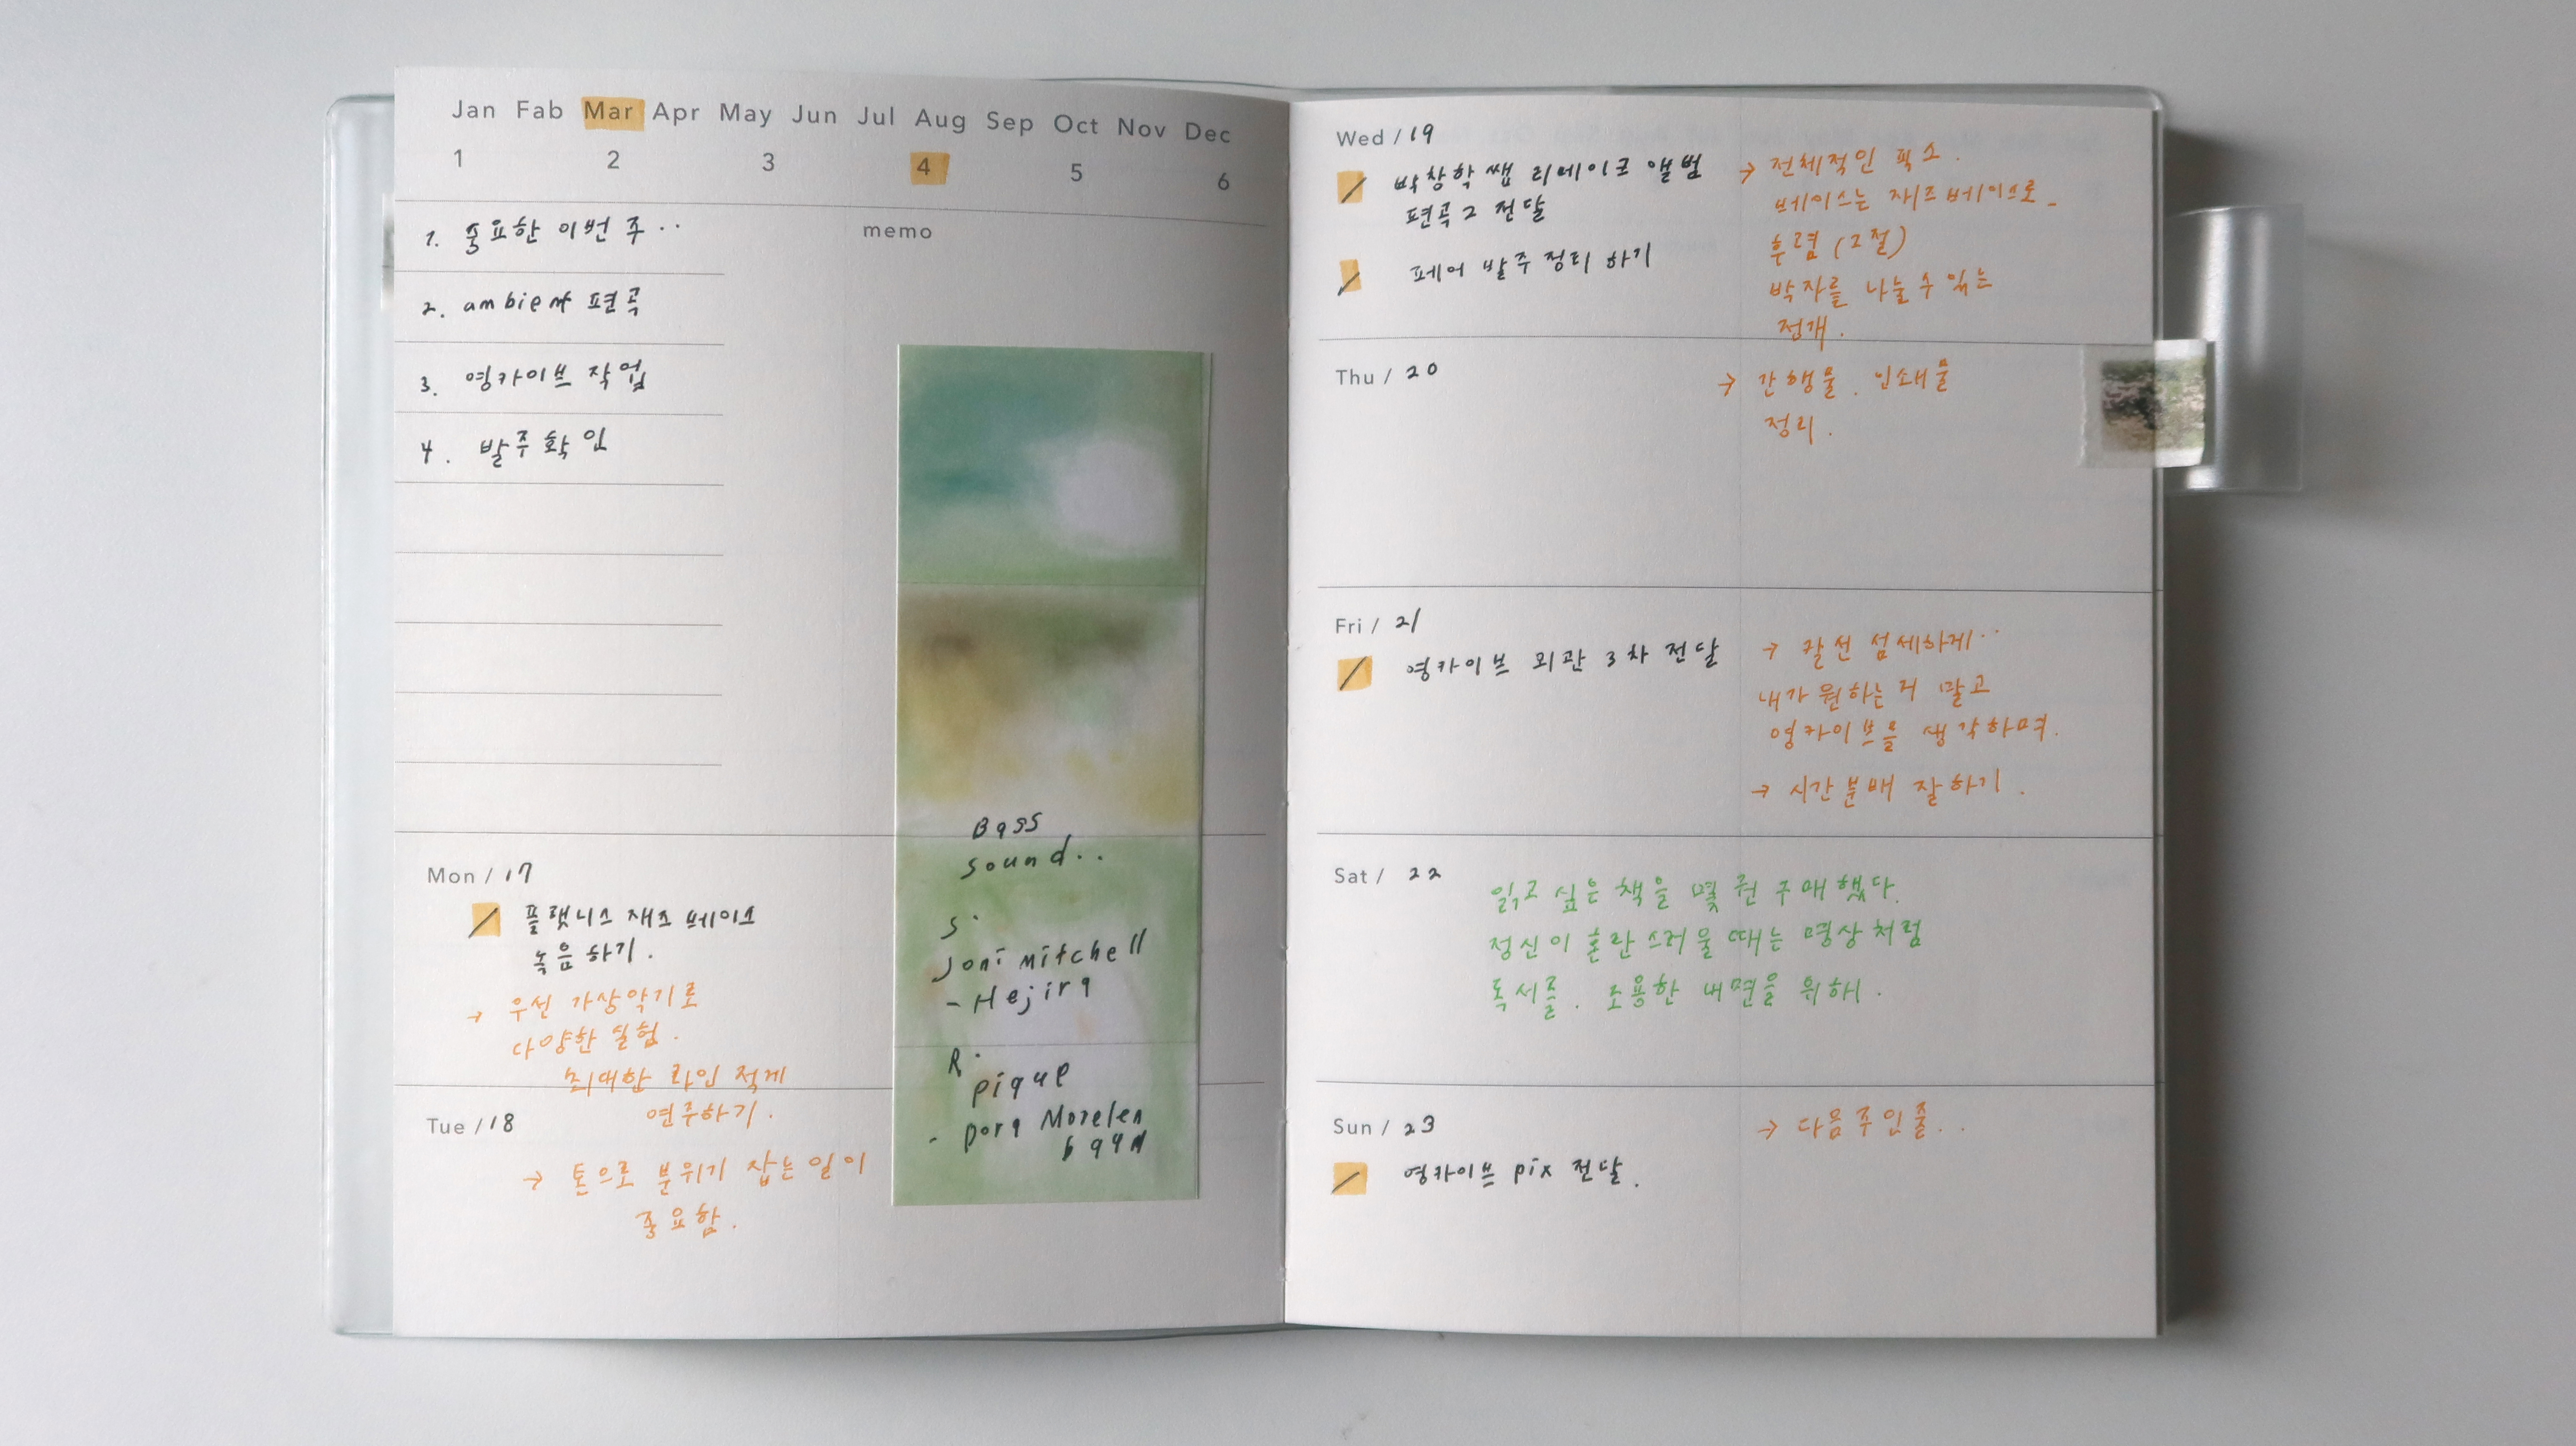 Jan Fab Mar Apr May Jun Jul Aug Sep Oct Nov Dec
1 2 3 4 5 6
1. 중요한 이번 주..
2. ambient 편곡
3. 영카이브 작업
4. 발주 확인
memo
Bass
sound..
S.
Joni Mitchell
- Hejira
R.
pique
- Dora Morelen
Mon / 17
플랫니스 재즈 베이스
녹음하기.
→ 우선 가상악기로
다양한 실험.
최대한 라인 적게
연주하기.
Tue / 18
→ 톤으로 분위기 잡는 일이
중요함.
Wed / 19
박창학쌤 리메이크 앨범
편곡2 전달
페어 발주 정리 하기
→ 전체적인 믹스.
베이스는 재즈베이스로
후렴 (2절)
박자를 나눌 수 있는
전개.
Thu / 20
→ 간행물. 인쇄물
정리.
Fri / 21
영카이브 외관 3차 전달
→ 칼선 섬세하게..
내가 원하는 거 말고
영카이브를 생각하며.
→ 시간분배 잘하기.
Sat / 22
읽고 싶은 책을 몇 권 구매했다.
정신이 혼란스러울 때는 명상처럼
독서를. 조용한 내면을 위해.
Sun / 23
영카이브 pix 전달.
→ 다음주인줄..